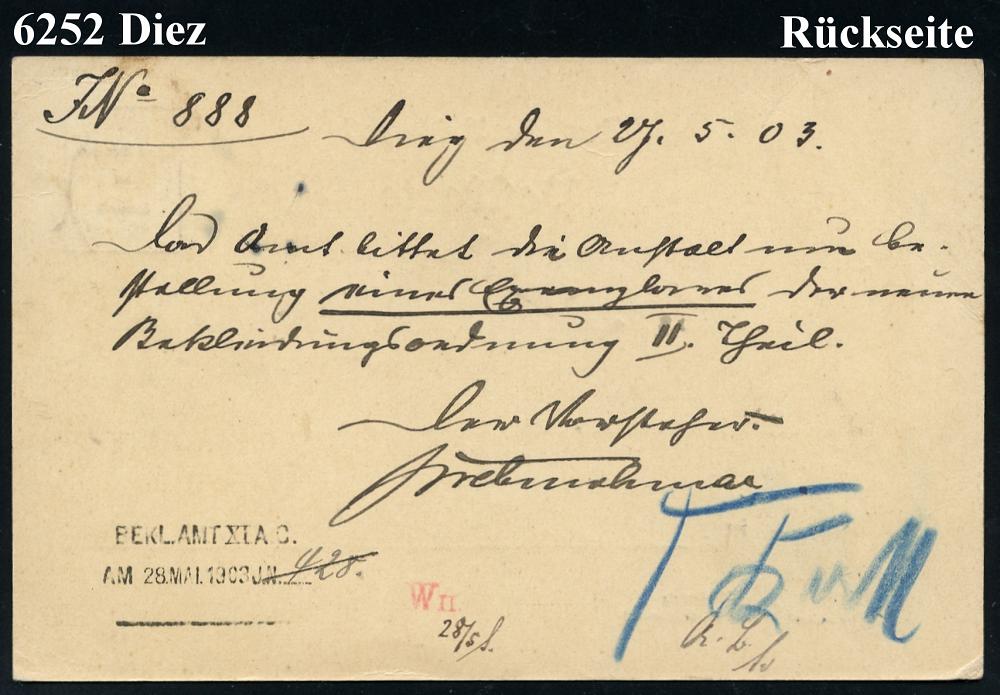 6252 Diez
Rückseite
JNo 888
Diez den 27. 5. 03.
Das Amt bittet die Anstalt um Be-
stellung eines Exemplares der neuen
Bekleidungsordnung II. Theil.
Der Vorsteher.
BEKL.AMT XI A.C.
AM 28.MAI.1903 J.N. 428.
W II.
28/5